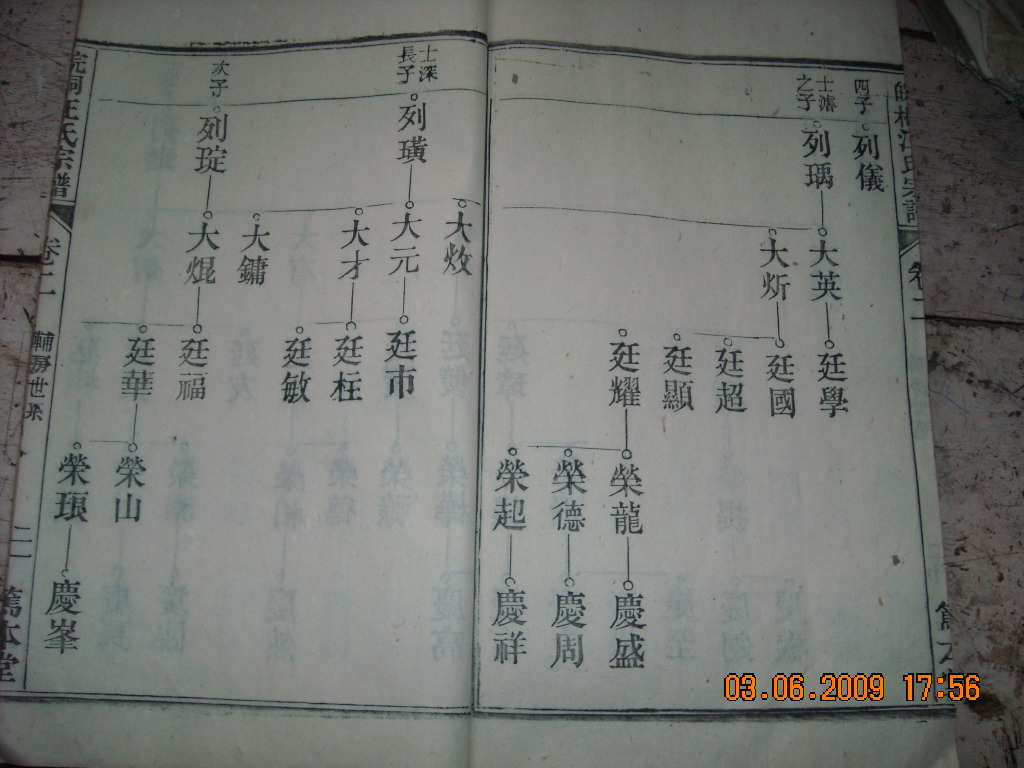 四子
列儀
士濬
之子
列瑀
大英
大炘
廷學
廷國
廷超
廷顯
廷耀
榮龍
榮德
榮起
慶盛
慶周
慶祥
士深
長子
列璜
次子
列琔
大放
大元
大才
大鏞
大焜
廷市
廷枉
廷敏
廷福
廷華
榮山
榮頊
慶峯
皖桐汪氏宗譜
卷二
輔房世系
二
篤本堂
卷二
03.06.2009 17:56